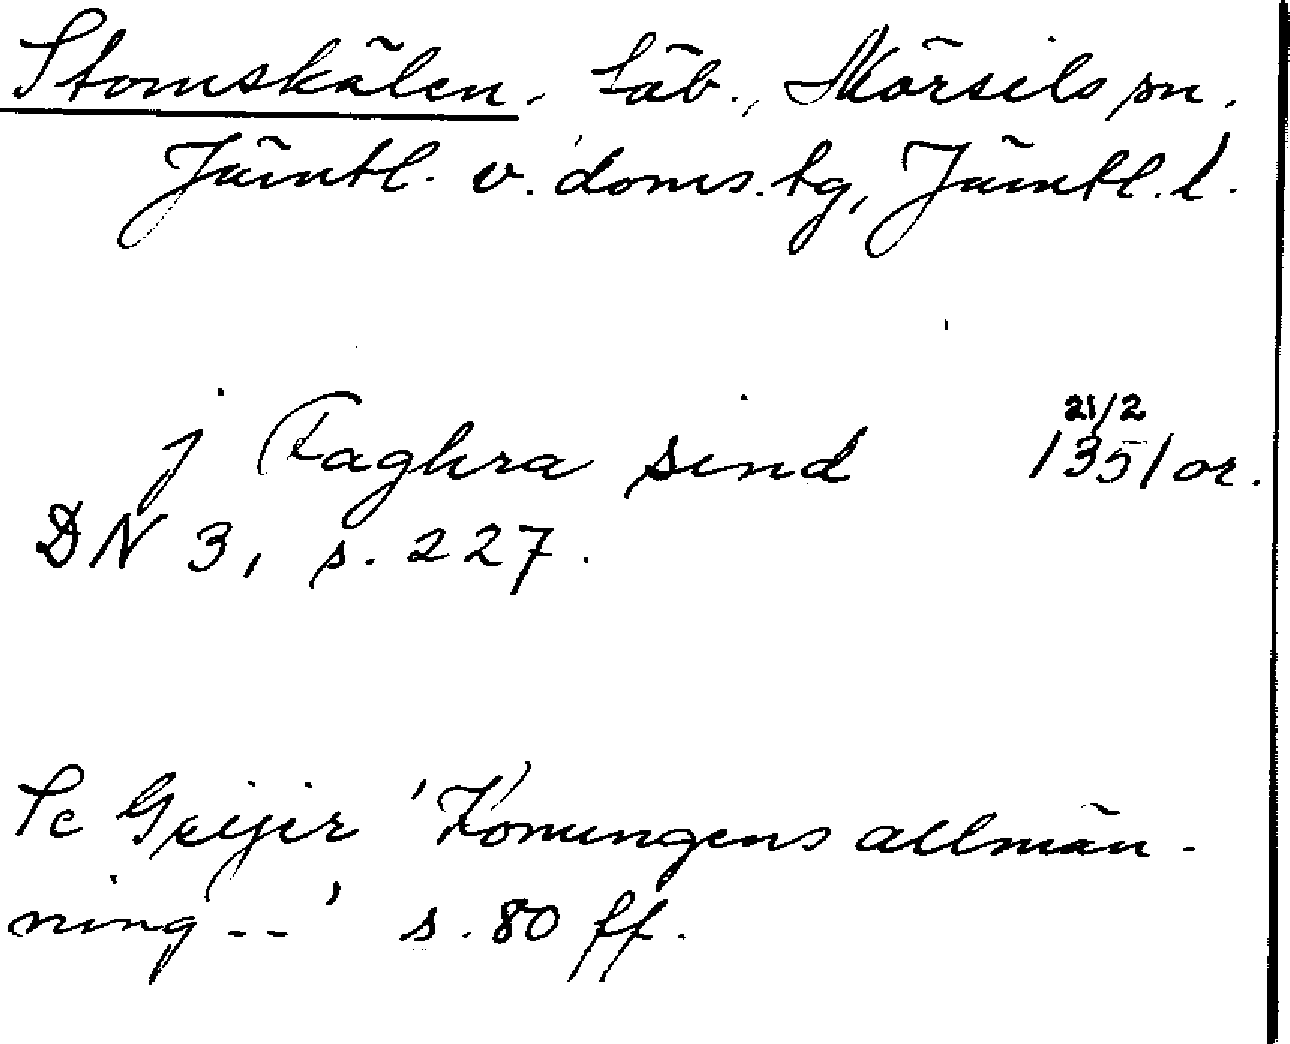 Stomskälen. fäb., Mörsils sn.
Jämtl. v. doms. tg, Jämtl. l.
21/2
j Faghra sind 1351 or.
DN 3, s. 227.
Se Geijer 'Konungens allmän-
ning --' s. 80 ff.